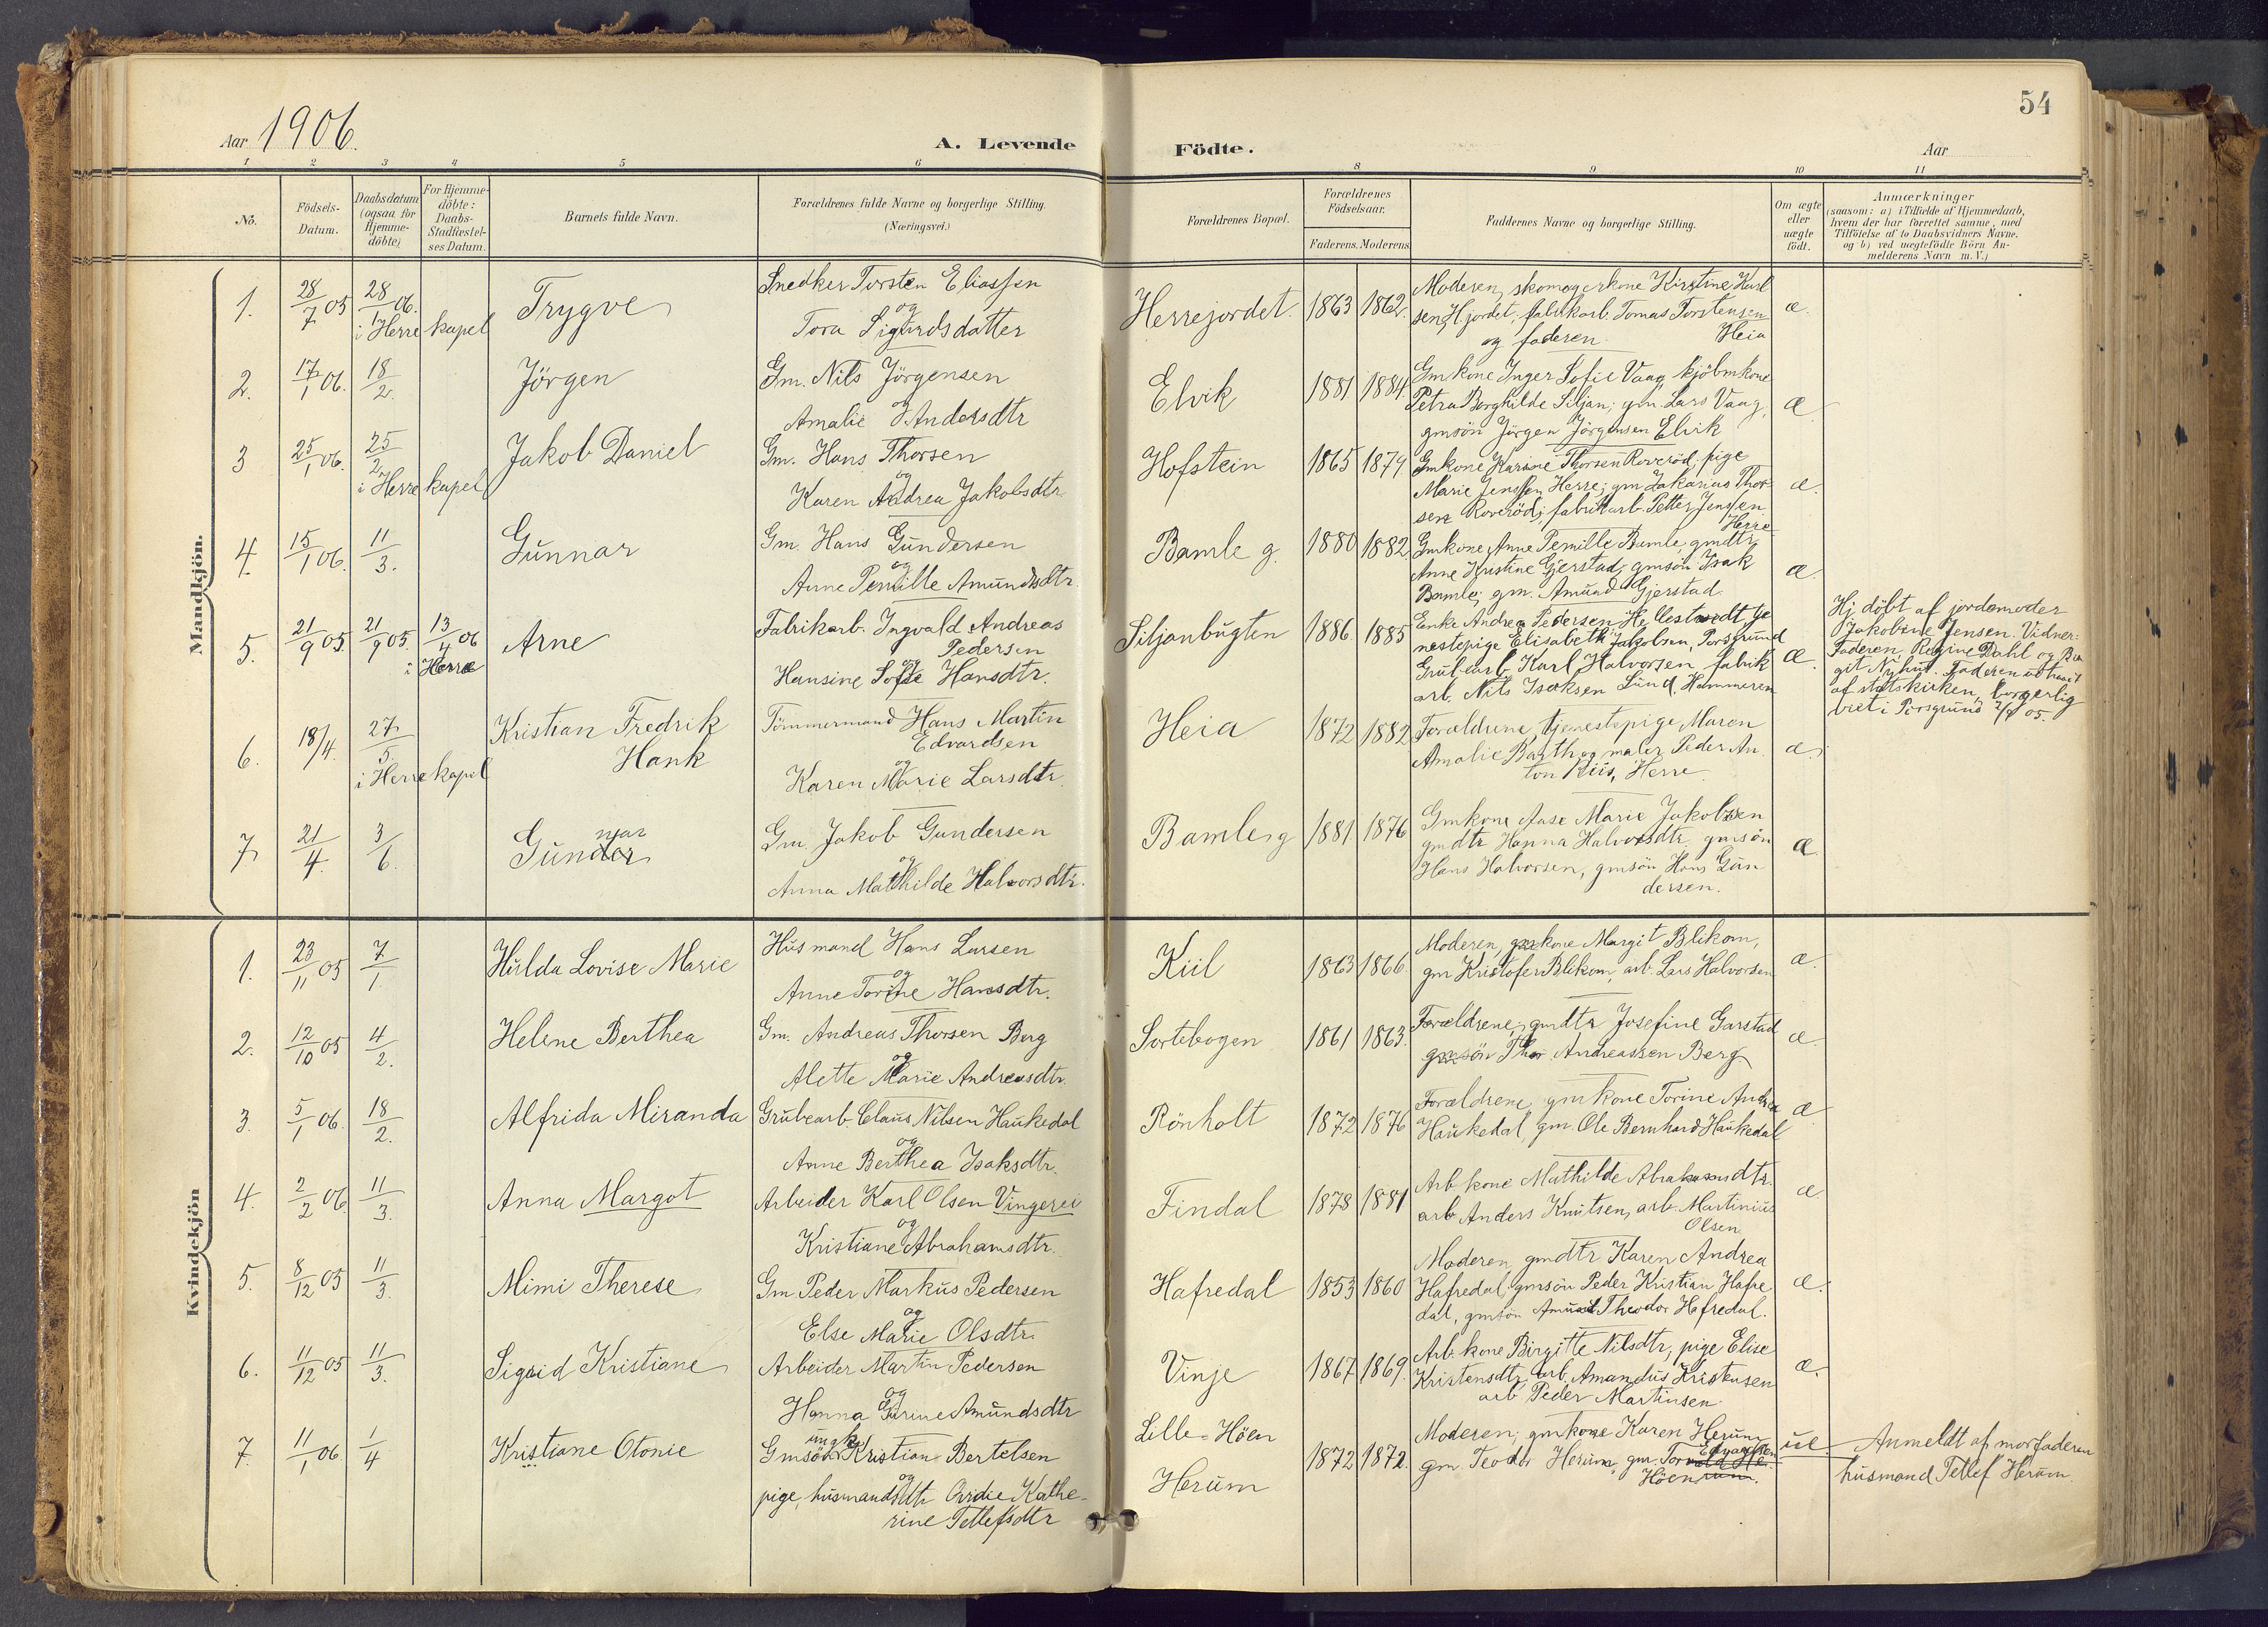 54
Aar 1906.
A. Levende Födte.
Aar
1 2 3 4 5 6 8 9 10 11
No.
Födsels-Datum.
Daabsdatum (ogsaa for Hjemme-döbte)
For Hjemme-döbte: Daabs-Stadfæstel-ses Datum.
Barnets fulde Navn.
Forældrenes fulde Navne og borgerlige Stilling. (Næringsvei.)
Forældrenes Bopæl.
Forældrenes Födselsaar.
Faderens. Moderens
Faddernes Navne og borgerlige Stilling.
Om ægte eller uægte födt.
Anmærkninger
(saasom: a) i Tilfælde af Hjemmedaab,
hvem der har forrettet samme, med
Tilföielse af to Daabsvidners Navne.
og b) ved uægtefödte Börn An-
melderens Navn m.V.)
Mandkjön.
1. 28/7 05 28/1 06. i Herre kapel
Trygve
Snedker Torsten Eliassen
og
Tora Sigurdsdatter
Herrejordet. 1863 1862.
Moderen, skomagerkone Kirstine Karl
sen, Hjordet, fabrikarb. Tomas Torstensen
og faderen. Heia
æ.
2. 17/1 06. 18/2.
Jörgen
Gm. Nils Jörgensen
og
Amalie Andersdtr
Elvik 1881 1884.
Gmkone Inger Sofie Vaag, kjöbmkone
Petra Borghilde Siljan; gm. Lars Vaag,
gmsön Jörgen Jörgensen Elvik
æ
3 25/1 06. 25/2 i Herre kapel
Jakob Daniel
Gm. Hans Thorsen
og
Karen Andrea Jakobsdtr.
Hofstein 1865 1879
Gmkone Karine Thorsen Roveröd, pige
Marie Jenssen Herre; gm Zakarias Thor
sen Roveröd; fabrikarb. Petter Jenssen
Herre
æ.
4. 15/1 06. 11/3.
Gunnar
Gm. Hans Gundersen
og
Anne Pernille Amundsdtr.
Bamle g. 1880 1882
Gmkone Anne Pernille Bamle, gmdtr
Anne Kristine Gjerstad, gmsön Isak
Bamle, gm. Amund Gjerstad.
æ.
5. 21/9 05 21/9 05. 13/4 06 i Herre
Arne
Fabrikarb. Ingvald Andreas
Pedersen
og
Hansine Sofie Hansdtr.
Siljanbugten 1886 1885
Enke Andrea Pedersen Hellestvedt, tje
nestepige Elisabeth Jakobsen, Porsgrund
Grubearb. Karl Halvorsen, fabrik
arb. Nils Isaksen Lund, Hammeren
æ.
Hj. döbt af jordemoder
Jakobine Jensen. Vidner:
Faderen, Regine Dahl og Bir
git Nyhus. Faderen udtraadt
af statskirken, borgerlig
viet i Porsgrund 05.
6. 18/4. 27/5. i Herre kapel
Kristian Fredrik
Hank
Tömmermand Hans Martin
Edvardsen
og
Karen Marie Larsdtr.
Heia 1872 1882
Forældrene, tjenestepige Maren
Amalie Barth og maler Peder An
ton Riis, Herre.
æ.
7. 21/4. 3/6.
njar
Gunder
Gm. Jakob Gundersen
og
Anna Mathilde Halvorsdtr.
Bamle g 1881 1876
Gmkone Aase Marie Jakobsen
gmdtr Hanna Halvorsdtr, gmsön
Hans Halvorsen, gmsön Hans Gun
dersen.
æ.
Kvindekjön
1. 23/11 05 7/1.
Hulda Lovise Marie
Husmand Hans Larsen
og
Anne Torine Hansdtr.
Kiil 1863 1866.
Moderen, gmkone Margit Blikom,
gm Kristofer Blikom, arb. Lars Halvorsen
æ.
2. 12/10 05 4/2.
Helene Berthea
Gm. Andreas Thorsen Berg
og
Alette Marie Andreasdtr.
Sortebogen 1861 1863.
Forældrene, gmdtr Josefine Garstad
gmsön Thor Andreassen Berg
æ.
3. 5/1 06. 18/2.
Alfrida Miranda
Grubearb. Claus Nilsen Haukedal
og
Anne Berthea Isaksdtr.
Rönholt 1872 1876
Forældrene, gmkone Torine Andrea
Haukedal, gm. Ole Bernhard Haukedal
æ
4. 2/2 06 11/3.
Anna Margot
Arbeider Karl Olsen Vingerei
og
Kristiane Abrahamsdtr.
Findal 1878 1881
Arb kone Mathilde Abrahamsdtr.
arb Anders Knutsen, arb. Martinius
Olsen
æ.
5. 8/12 05 11/3.
Mimi Therese
Gm. Peder Markus Pedersen
og
Else Marie Olsdtr.
Hafredal 1853 1860
Moderen gmdtr Karen Andrea
Hafredal, gmsön Peder Kristian Hafre
dal, gmsön Amund Theodor Hafredal.
æ.
6. 11/12 05 11/3.
Sigrid Kristiane
Arbeider Martin Pedersen
og
Hanna Amundsdtr
Vinje 1867 1869.
Arb. kone Birgitte Nilsdtr, pige Elise
Kristensdtr; arb. Amandus Kristensen
arb Peder Martinsen.
æ.
7. 11/1 06 1/4
Kristiane Otonie
ungk.
Gmsön Kristian Bertelsen
og
pige, husmandsdtr Ovidie Kathe-
rine Tellefsdtr
Lille-Höen
Herum
1872 1872.
Moderen, gmkone Karen Herum
gm. Teodor Herum, gm. Tor
Höen
uæ.
Anmeldt af morfaderen
husmand Tellef Herum.